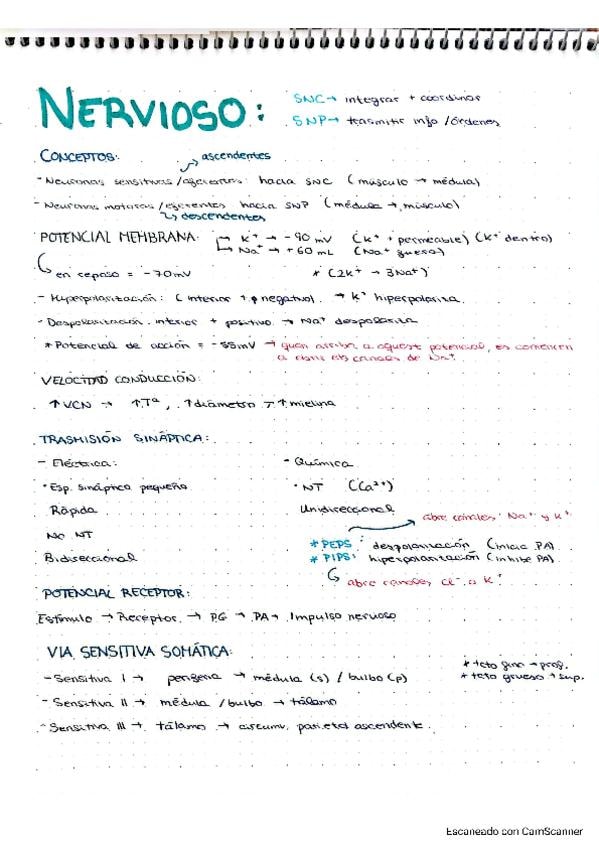 NERVIOSO:
SNC → integrar + coordinar
SNP → trasmitir info / órdenes
CONCEPTOS:
ascendentes
- Neuronas sensitivas / aferentes: hacia SNC (músculo → médula)
- Neuronas motoras / eferentes hacia SNP (médula → músculo)
descendentes
POTENCIAL MEMBRANA: → K⁺ → -90 mV (K⁺ + permeable) (K⁺ dentro)
→ Na⁺ → +60 mL (Na⁺ fuera)
en reposo = -70mV * (2K⁺ → 3Na⁺)
- Hiperpolarización: (interior + negativo) → K⁺ hiperpolariza.
- Despolarización: interior + positivo → Na⁺ despolariza
* Potencial de acción = -55mV → quan arriba a aquest potencial, es comencen
a obrir els canales de Na⁺.
VELOCIDAD CONDUCCIÓN:
↑ VCN → ↑Tª, ↑diámetro, ↑mielina
TRASMISIÓN SINÁPTICA:
- Eléctrica: - Química
· Esp. sináptico pequeño · NT (Ca²⁺)
Rápida Unidireccional
abre canales Na⁺ y K⁺
No NT
* PEPS: despolarización (inicia PA)
Bidireccional * PIPS: hiperpolarización (inhibe PA)
abre canales Cl⁻ o K⁺
POTENCIAL RECEPTOR:
Estímulo → Receptor → PG → PA → Impulso nervioso
VIA SENSITIVA SOMÁTICA:
* tcto fino → prof.
- Sensitiva I → periferia → médula (s) / bulbo (p) * tcto grueso → sup.
- Sensitiva II → médula / bulbo → tálamo
- Sensitiva III → tálamo → circumv. parietal ascendente.
Escaneado con CamScanner